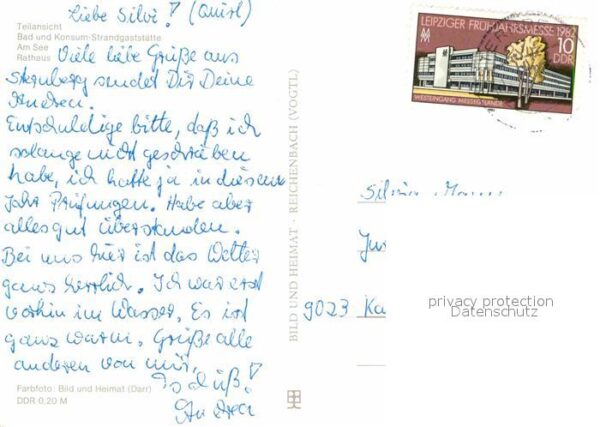 Liebe Silvi! (Quirl)
Teilansicht
Bad und Konsum-Strandgaststätte
Am See
Rathaus
Viele liebe Grüße aus
Sternberg sendet Dir Deine
Andrea.
Entschuldige bitte, daß ich
solange nicht geschrieben
habe, ich hatte ja in diesem
Jahr Prüfungen. Habe aber
alles gut überstanden.
Bei uns hier ist das Wetter
ganz herrlich. Ich war erst
vorhin im Wasser. Es ist
ganz warm. Grüße alle
anderen von mir.
Tschüß!
Andrea
Farbfoto: Bild und Heimat (Darr)
DDR 0,20 M
BILD UND HEIMAT · REICHENBACH (VOGTL)
LEIPZIGER FRÜHJAHRSMESSE 1982
MM
10
DDR
WESTEINGANG MESSEGELÄNDE
9023 Ka
privacy protection
Datenschutz